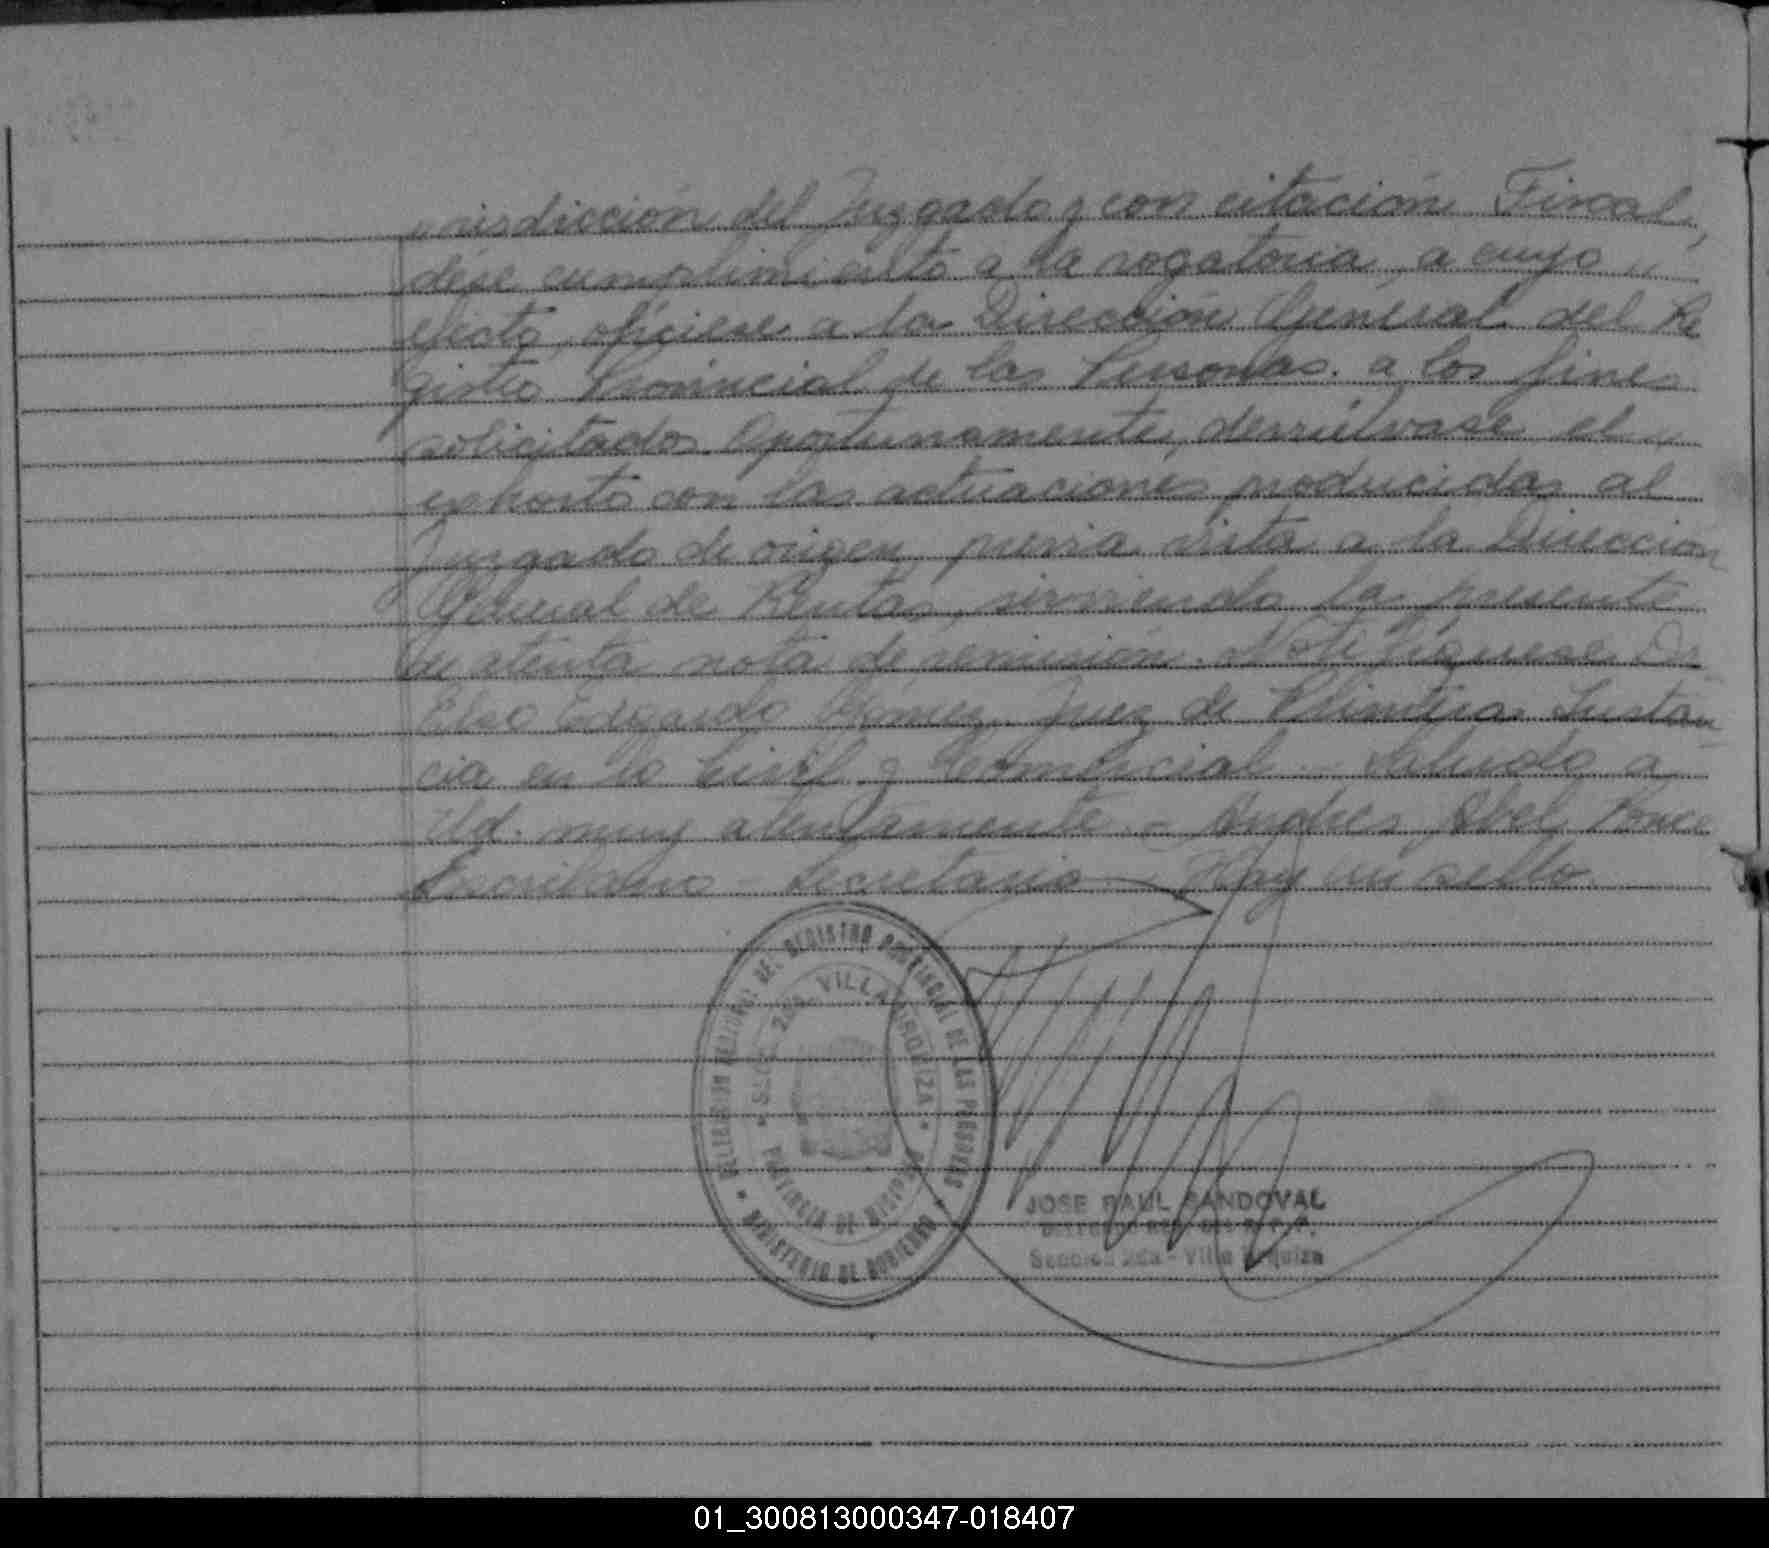 urisdicción del Juzgado y con citación Fiscal,
dése cumplimiento a la rogatoria, a cuyo
efecto, ofíciese a la Dirección General del Re
gistro Provincial de las Personas a los fines
solicitados. Oportunamente, devuélvase el
exhorto con las actuaciones producidas al
Juzgado de origen, previa vista a la Dirección
General de Rentas, sirviendo la presente
de atenta nota de remisión. Notifíquese Dr.
Elso Edgardo Gómez Juez de Primera Instan
cia en lo Civil y Comercial. Saludo a
Ud. muy atentamente. - Andres Abel Ponce
Escribano Secretario - Hay un sello.
DEL REGISTRO PROVINCIAL DE LAS PERSONAS
SECC. 2da. VILLA URQUIZA
PROVINCIA DE MISIONES
MINISTERIO DE GOBIERNO
JOSE RAUL SANDOVAL
Seccion 2da - Villa Urquiza
01_300813000347-018407